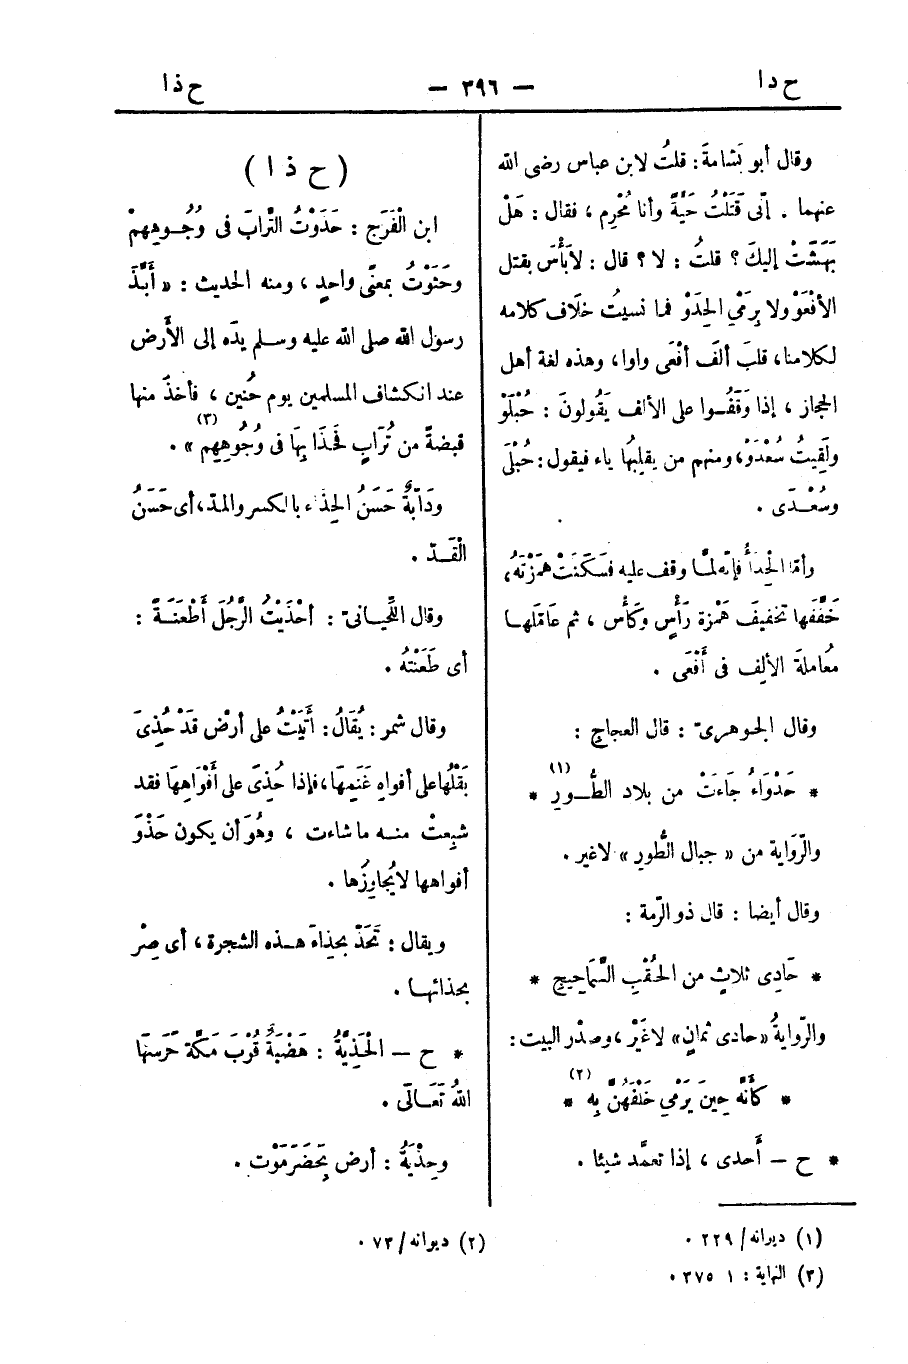 ح دا — ٣٩٦ — ح ذا
وقال أبو نَشامةَ : قلتُ لابن عباس رضى الله
عنهما . إنّى قَتَلْتُ حَيَّةً وأنا مُحْرِم ، فقال : هَلْ
بَهَشَتْ إليكَ ؟ قلتُ : لا ؟ قال : لاَبَأْسَ بقتل
الأفْعَوْ ولا بِرَمْيِ الحِدَوْ فما نسيتُ خلَاف كلامه
لكلامنا، قلبَ ألفَ أفْعَى واوا، وهذه لغة أهل
الحجاز ، إذا وَقَفُـوا على الألف يَقُولونَ : حُبْلَوْ
ولَقِيتُ سُعْدَوْ، ومنهم من يقلِبُها ياء فيقول : حُبْلَىْ
وسُعْـدَى .
وأمّا الحِدأُ فإنّه لمـّا وقف عليه فسَكَنَتْ هَمْزَتَهُ،
خَفَّفَها تخفيفَ هَمْزة رَأْسٍ وكَأْس ، ثم عَاملَهـا
مُعاملةَ الألِف فى أَفْعَى .
وقال الجوهرىّ : قال العجاج :
* حَدْوَاءُ جَاءَتْ من بلاد الطُّـورِ (١) *
والرّوَاية من « جبال الطُّورِ » لاغير .
وقال أيضا : قال ذو الرّمة :
* حَادِى ثلاثٍ من الحُقْبِ السَّمَاحِيجِ *
والرّوايةُ « حادى ثمانٍ» لاغَيْرَ ، وصدْر البيت :
* كَأَنَّه حِينَ يَرْمِي خَلْفَهُنَّ بِهِ (٢) *
* ح — أَحدى ، إذا تعمَّد شيئا .
( ح ذ ا )
ابن الْفَرَج : حَذَوْتُ التُّرابَ فى وُجُـوهِهِمْ
وحَثَوْتُ بمعنًى واحدٍ ، ومنه الحديث : « أَبَدَّ
رسول الله صلى الله عليه وسلم يدَه إلى الأَرض
عند انكشاف المسلمين يوم حُنين ، فأخذَ منها
قبضةً من تُرَابٍ فَحَذَا بِهَا فى وُجُوهِهِم (٣) » .
ودَابّةٌ حَسَنُ الحِذَاء بالكسر والمدّ، أى حَسَنُ
الْقَـدّ .
وقال اللِّحيانىّ : أَحْذَيْتُ الرَّجُلَ أَطْعَنَـةً :
أى طَعَنْتُه .
وقال شمر : يُقَالُ : أَتَيْتُ على أرْض قَدْ حُذِىَ
بَقْلُها على أفواهِ غَنَمِهَا، فإذا حُذِىَ على أَفْوَاهِهَا فقد
شبِعتْ منـه ماشاءت ، وهُوَ أن يكون حَذْوَ
أفواهها لايُجاوِزُها .
ويقال : تَحَذَّ بحِذاءَ هـذه الشجرة ، أى صِرْ
بحذائهـا .
* ح — الْحَذِيَّةُ : هَضْبَةٌ قُرْبَ مَكَّةَ حَرَسَهَا
اللهُ تَعَـالَى .
وحِذْيَةُ : أرض بِحَضْرَمَوْت .
(١) ديوانه/ ٢٢٩ .
(٢) ديوانه/ ٧٣ .
(٣) النهاية : ١ ٣٧٥ .